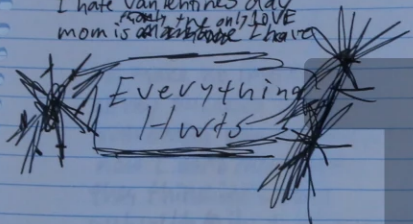 I hate Vanlentines day
the only LOVE
mom is I have
Everything
Hurts